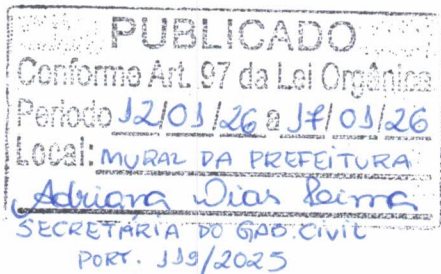 PUBLICADO
Conforme Art. 97 da Lei Orgânica
Período 12/01/26 a 17/01/26
Local: MURAL DA PREFEITURA
Adriana Dias
SECRETÁRIA DO GAB. CIVIL
PORT. 119/2025